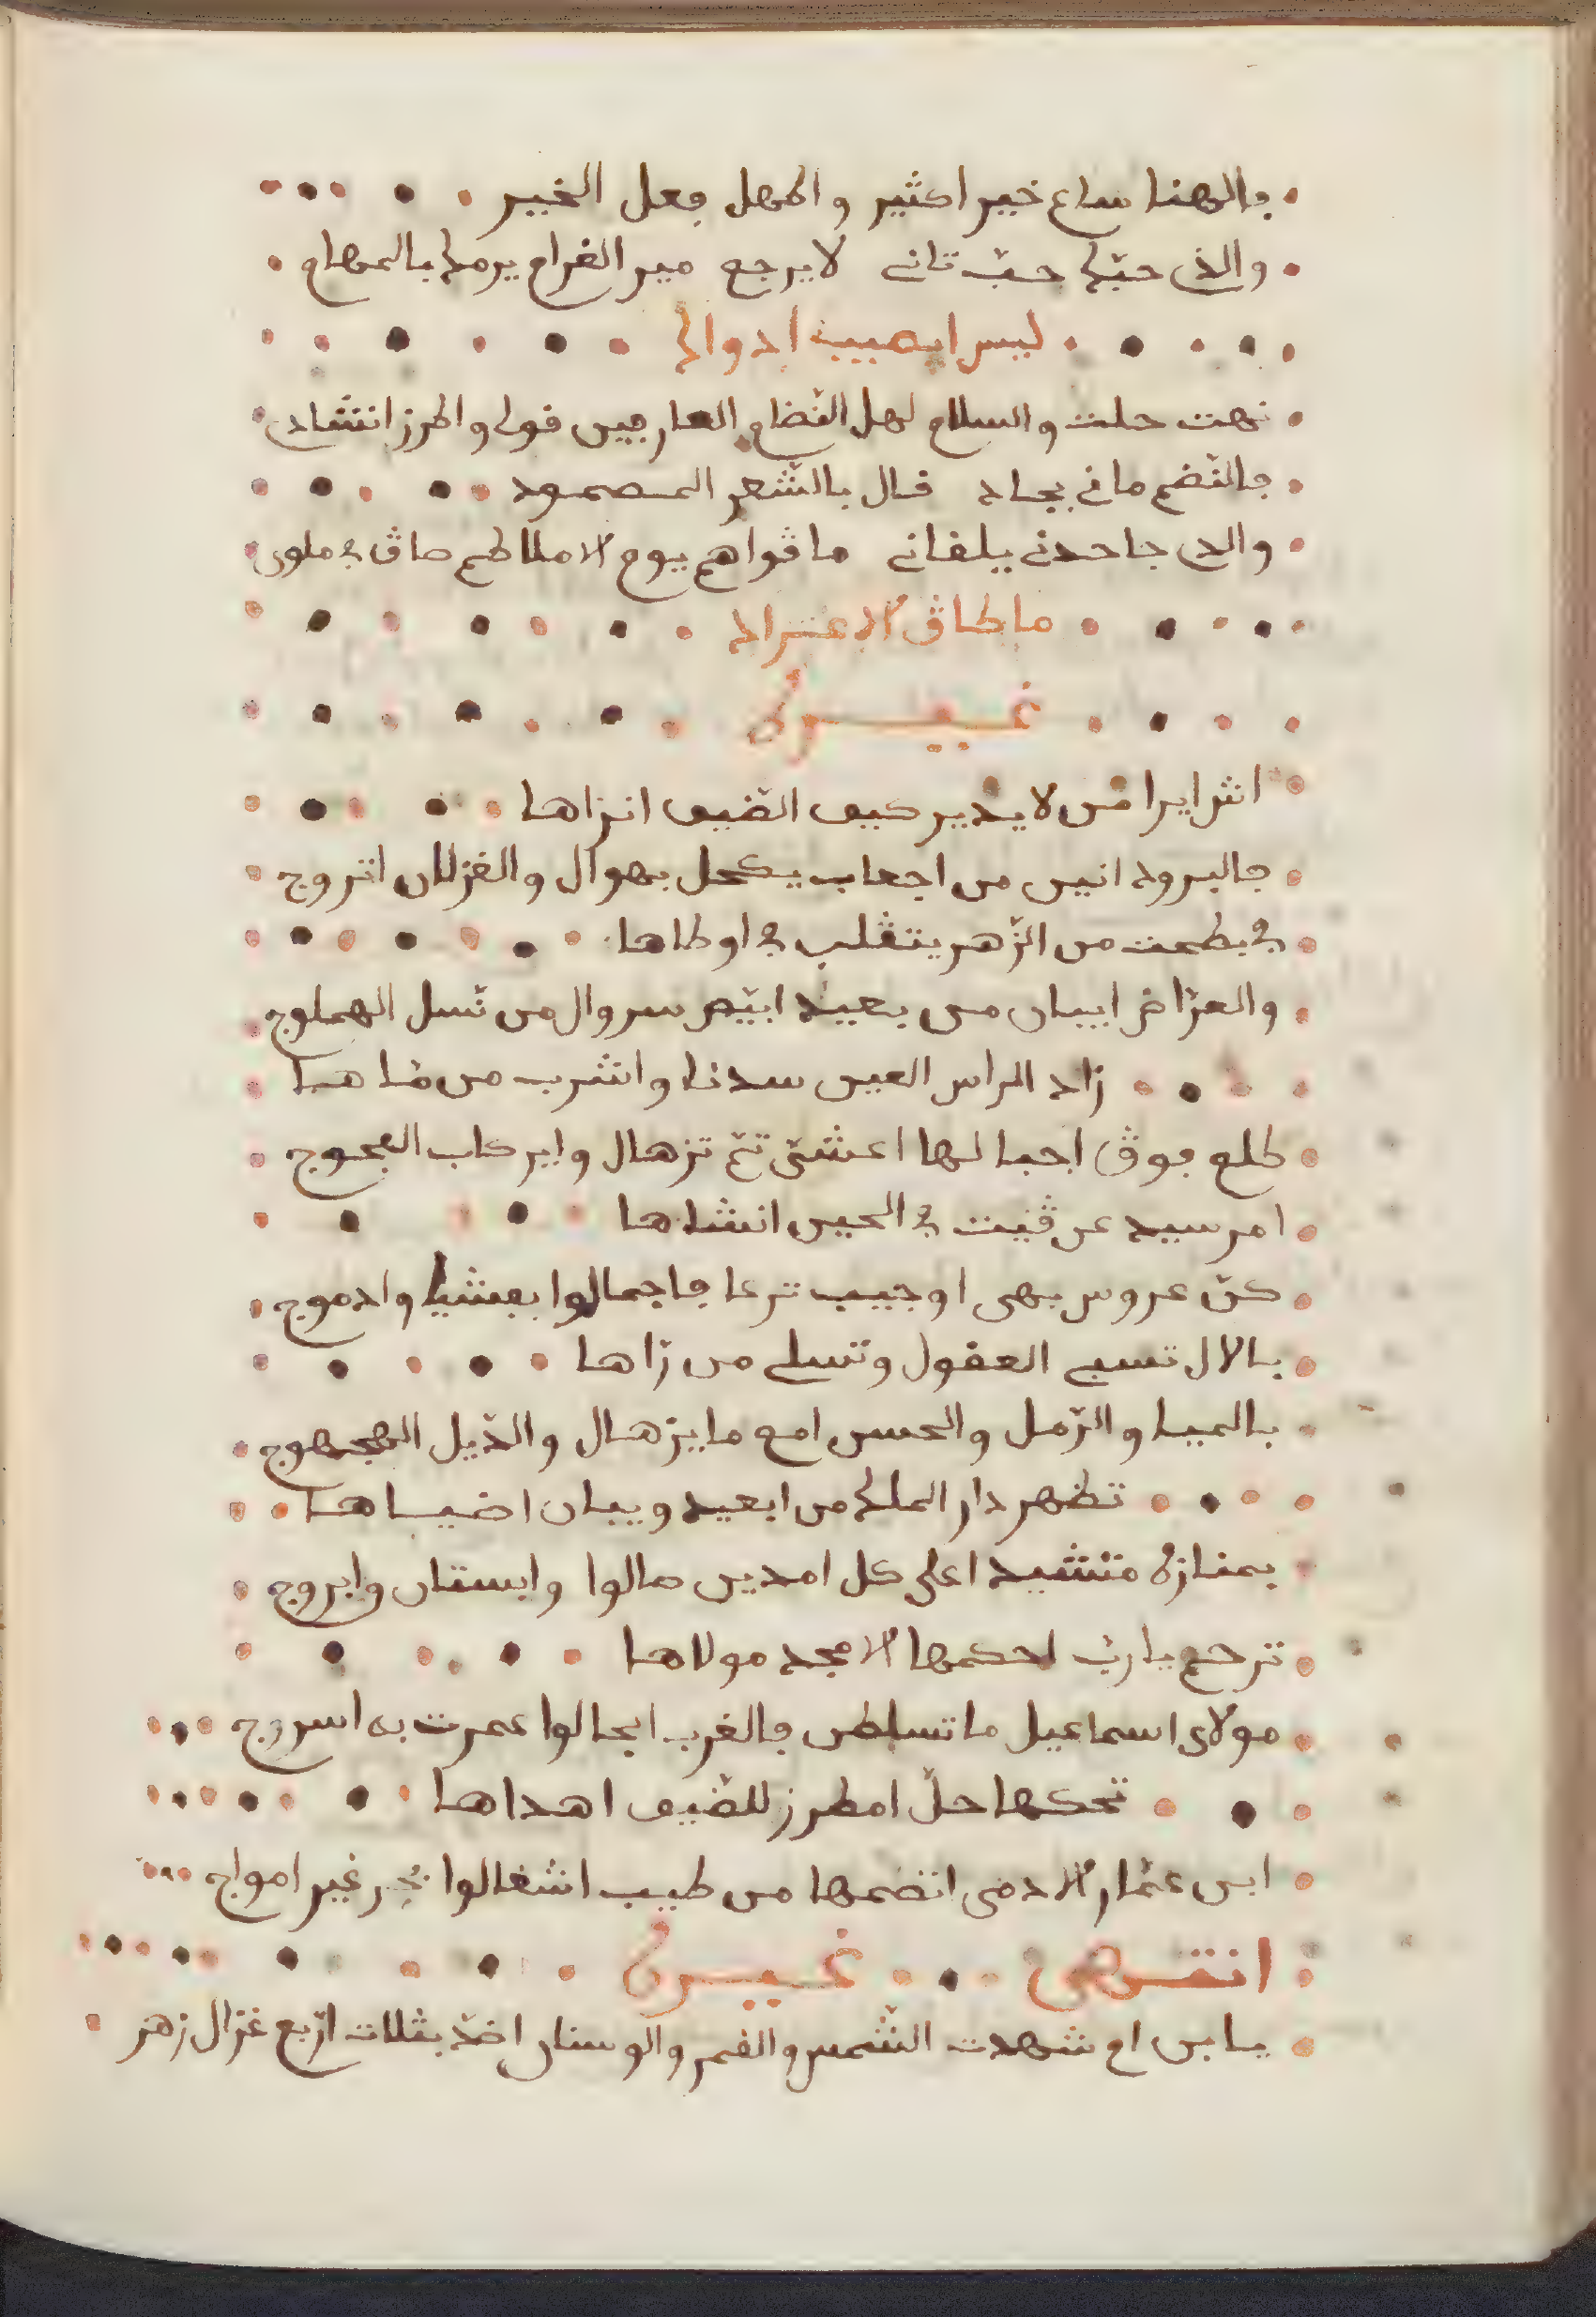 فالهنا ساع خير اكثير واطهل فعل الخير
والذى حبّه حبّ تانى لا يرجع مير الغرام يرمه بالمهام
ليس ايصيب ادواه
نهت حلت والسلام لهل النّضام العارفين قوله والطرز انشاد
فالنّضم مانى بجاد قال بالشّعر المصمود
والى جاحدنى يلقانى ماڨواهم يوم الاملاطم صاڨ في ملون
ماطاڨ الاعتراد
غيره
اش ايراس لا يدير كيف الضّيف انزاها
فالبرود انيس من اجعاب يكحل بهوال والغزلان اتروج
في بطحت من الزّهر يتڨلب في اوطاها
والعرّاض ايبان من بعيد ابيّض سروال من ثّسل الهملوج
زاد الراس العين سدنا واشرب من ماها
طلع فوڨ اجبالها اعشيّ تمّ تزهال وايركاب الفجوج
امرسيد عن ڨيت في الحين انشاها
كنّ عروس بهى اوجيب ترعا فاجمالوا بعشيا وادموج
بالال تسبى العقول وتسلى من زاها
بالميا والرّمل والحسن امع مايزهال والذّيل المجهوج
تظهر دار الملك من ابعيد ويبان اضياها
بمنازه متشيد اعلى كل امدين صالوا وابستان وابروج
ترحم يا ربّ لحكمها الامجد مولاها
مولاى اسماعيل ماتسلطن فالغرب ابحالوا عمرت به اسروج
تحكها حلّ امطرز للضّيف اهداها
ابن عمّار الادمى انضمها من طيب اشغالوا بحر غير امواج
انتهى غيره
يا بن ام شهدت الشّمس والقمر والوسنان اخذ بثلات اربع غزال زهر